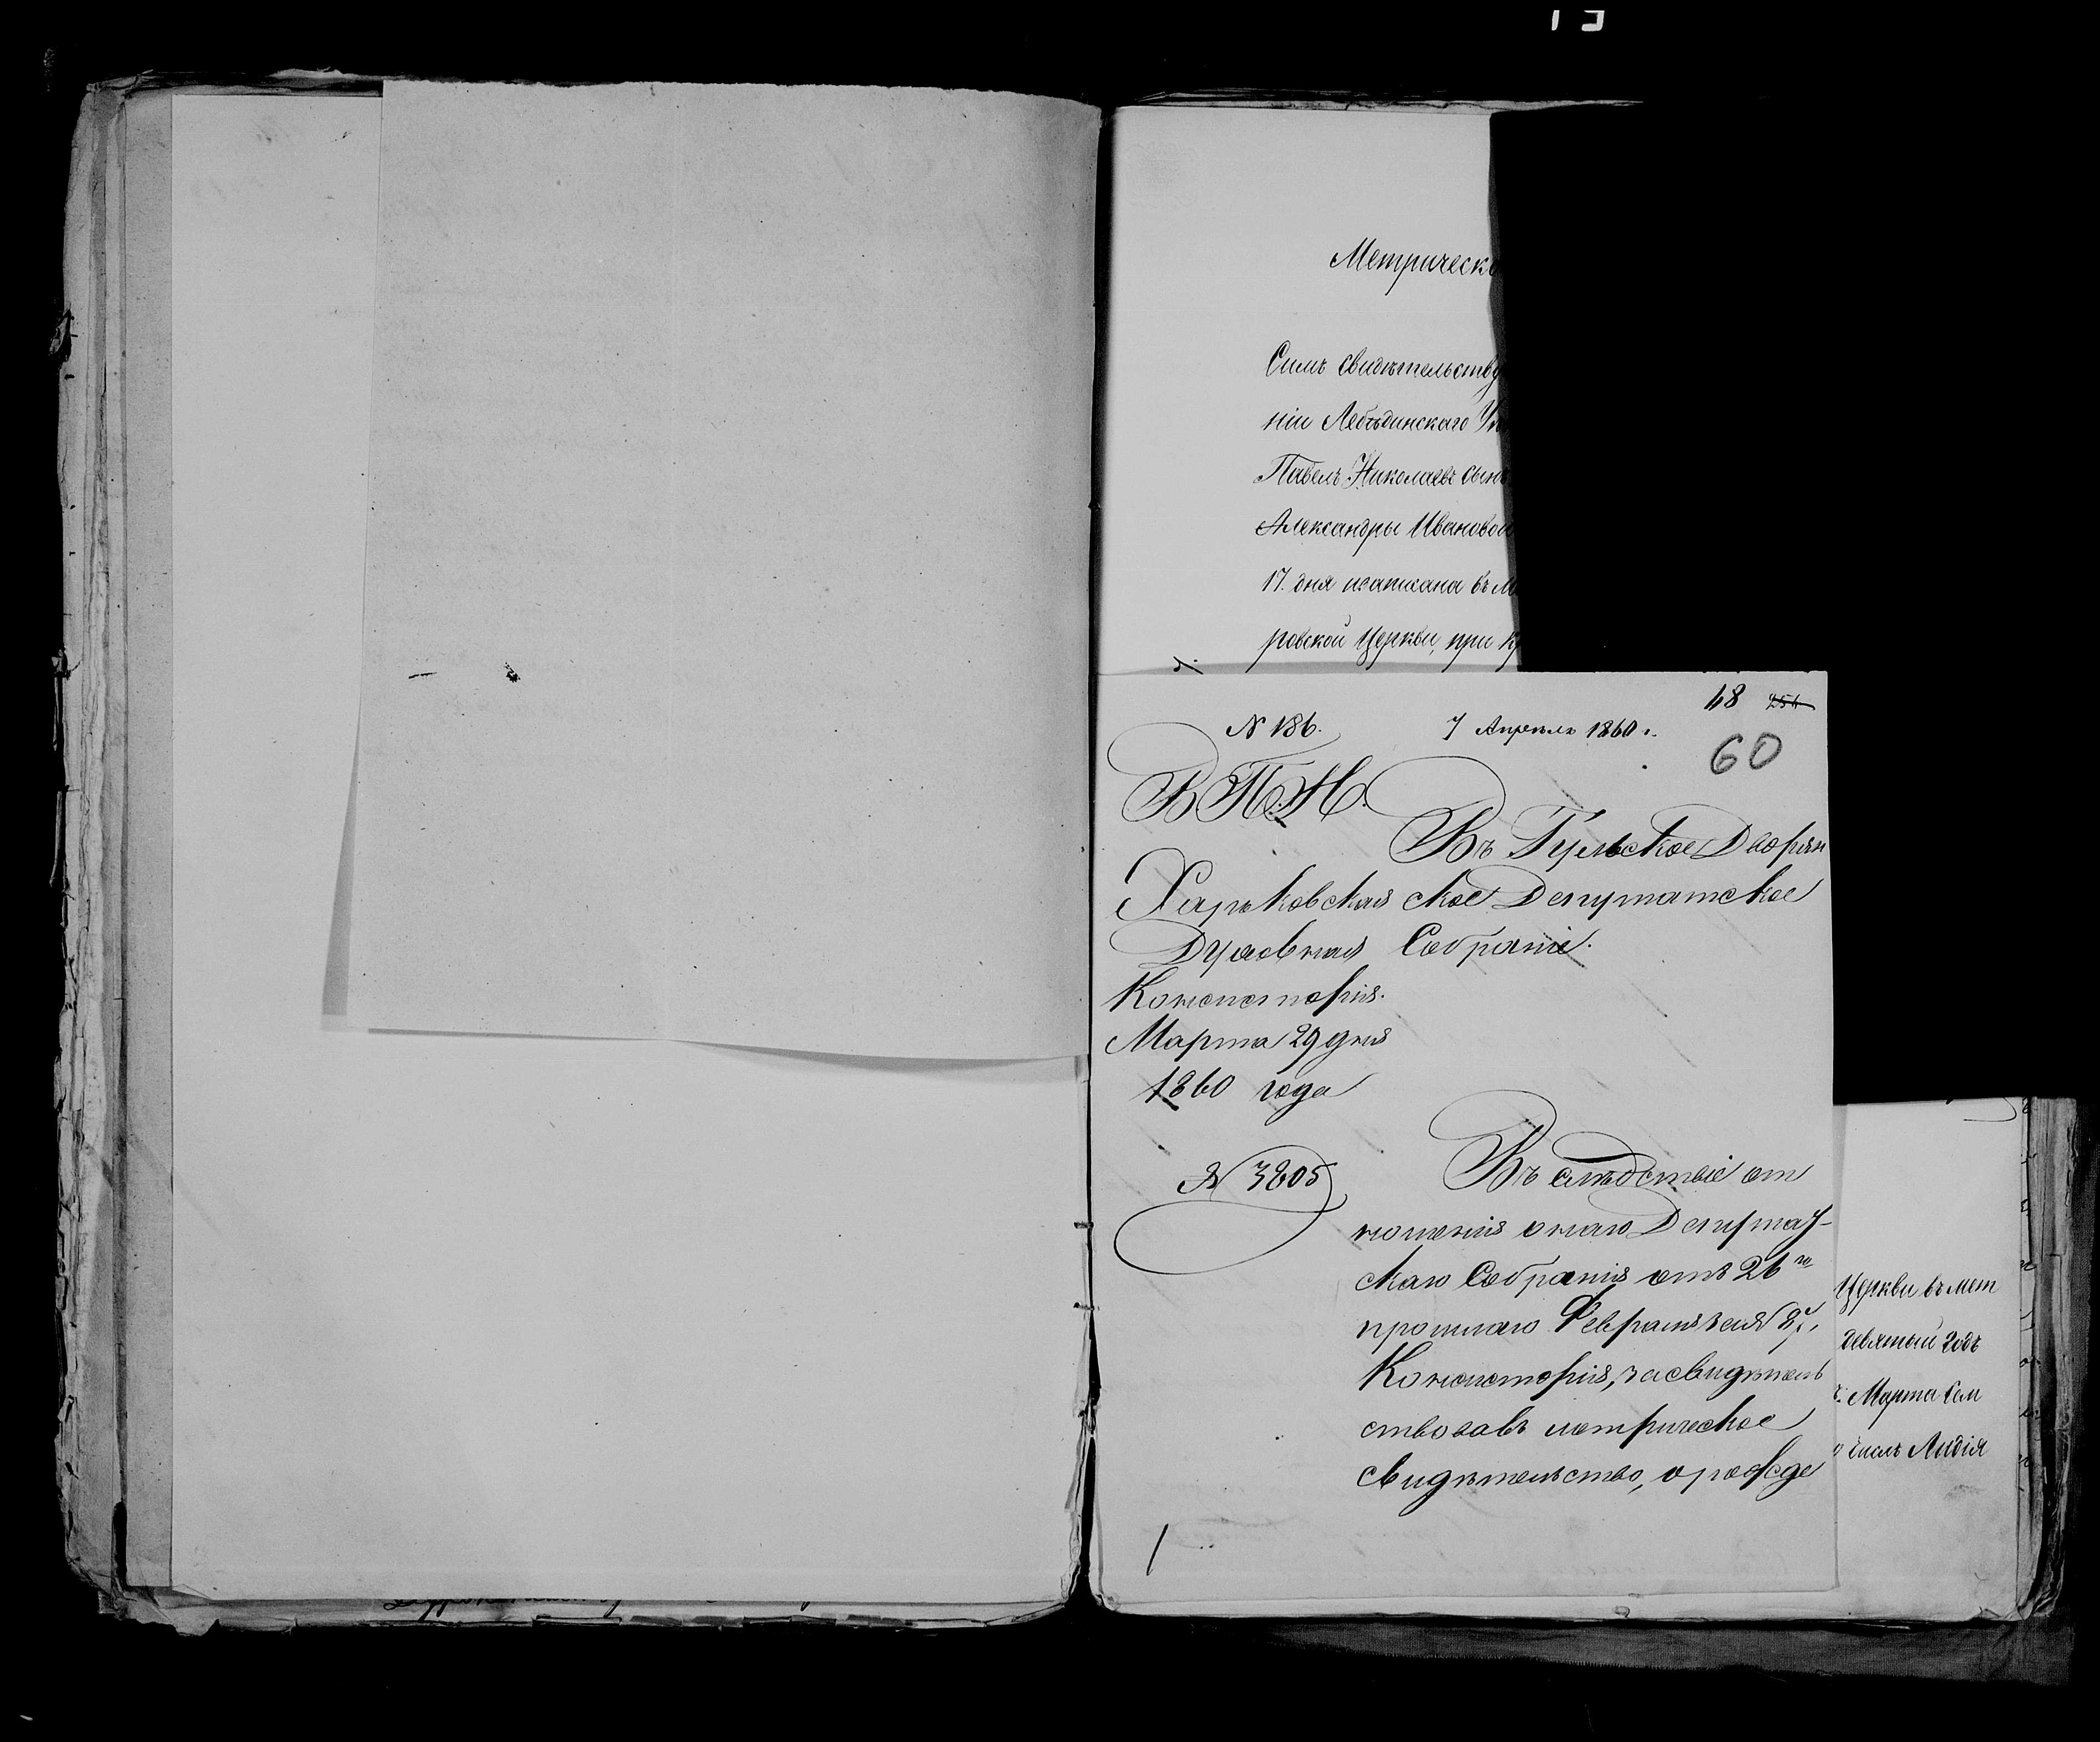 Метрическо
Симъ свидѣтельству
ніи Лебѣдинскаго
Павелъ Николаевъ сынъ
Александры Ивановой
17. дня писана въ м
ровской Церкви, при
48 254
N 186. 7 Апрѣля 1860 г.
60
В.П.И.
Въ Тульское Дворян
Харьковская ское Депутатское
Духовная Собраніе.
Консисторія.
Марта 29 дня
1860 года
N 3805
Въ слѣдствіе от
ношенія онаго Депутат-
скаго Собранія отъ 26го
прошлаго Февраля за N 87,
Консисторія, засвидѣтель
ствовавъ метрическое
свидѣтельство, о рожде
Церкви въ мет
девятый годъ
Марта Сем
числъ Лидія